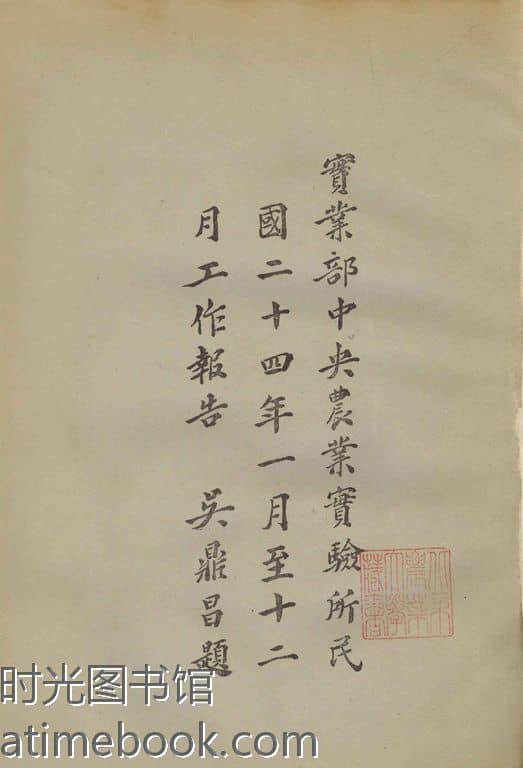 實業部中央農業實驗所民
國二十四年一月至十二
月工作報告 吳鼎昌題
北京
農業
大學
藏書
时光图书馆
atimebook.com